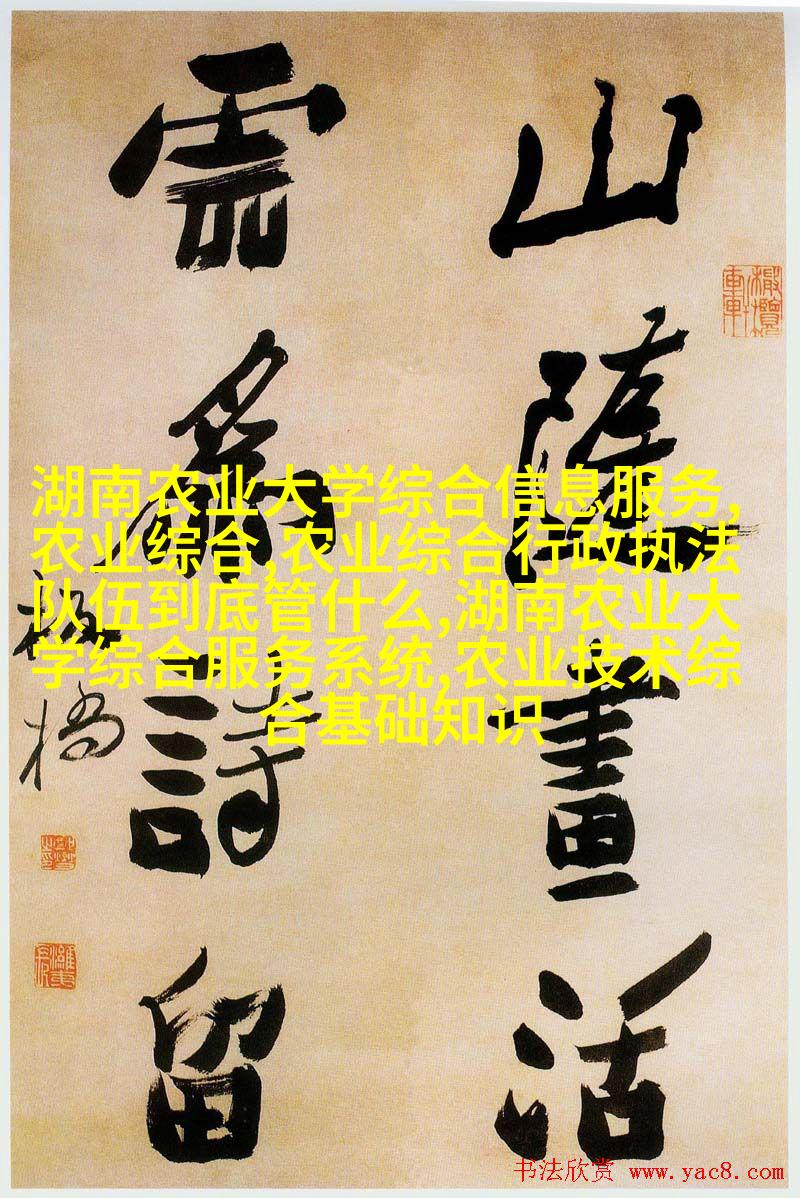 山隨畫活
雲爲詩留
板橋
湖南农业大学综合信息服务,
农业综合,农业综合行政执法
队伍到底管什么,湖南农业大
学综合服务系统,农业技术综
合基础知识
书法欣赏 www.yac8.com